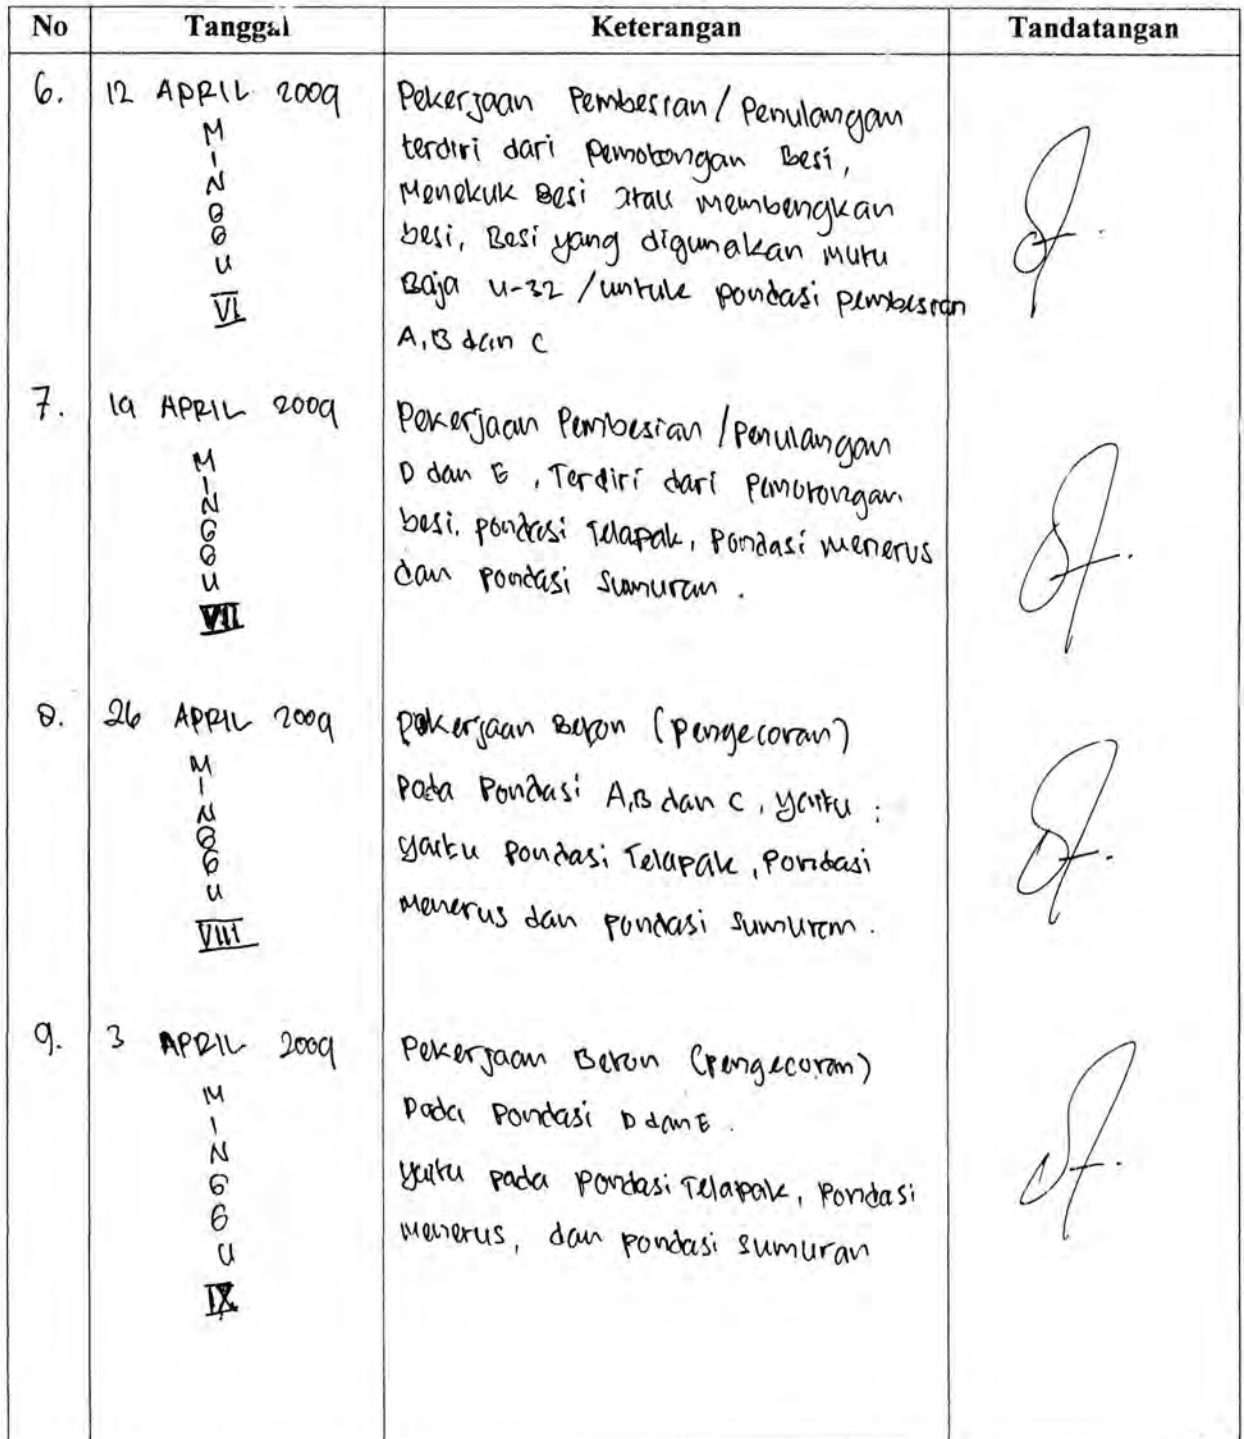 No Tanggal Keterangan Tandatangan
6. 12 APRIL 2009 Pekerjaan Pembesian / Penulangan
terdiri dari Pemotongan Besi,
Menekuk Besi atau membengkan
besi, Besi yang digunakan Mutu
Baja U-32 / untuk pondasi pembesian
A, B dan C
MINGGU
VI
7. 19 APRIL 2009 Pekerjaan Pembesian / Penulangan
D dan E, Terdiri dari Pemotongan
besi. pondasi Telapak, Pondasi menerus
dan Pondasi Sumuran.
MINGGU
VII
8. 26 APRIL 2009 Pekerjaan Beton (Pengecoran)
Pada Pondasi A, B dan C, yaitu :
yaitu Pondasi Telapak, Pondasi
Menerus dan pondasi Sumuran.
MINGGU
VIII
9. 3 APRIL 2009 Pekerjaan Beton (Pengecoran)
Pada Pondasi D dan E.
yaitu pada Pondasi Telapak, Pondasi
Menerus, dan pondasi sumuran
MINGGU
IX